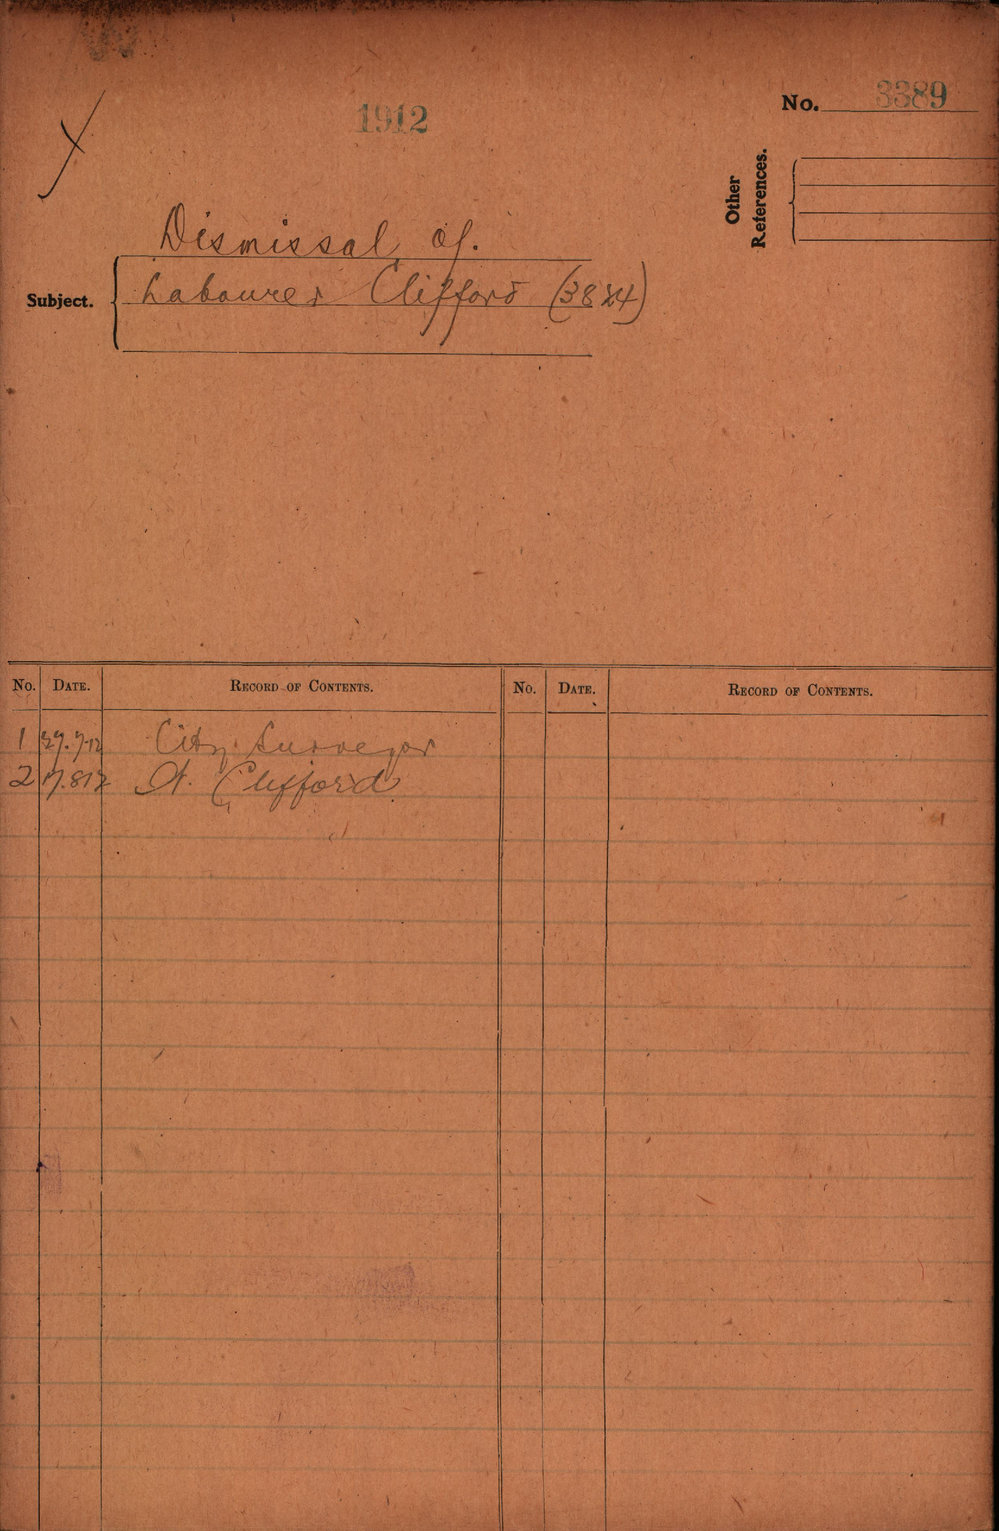 1912
No. 3389
Other References.
Dismissal of.
Subject. Labourer Clifford (3824)
No. DATE. RECORD OF CONTENTS. No. DATE. RECORD OF CONTENTS.
1 29.7.12 City Surveyor
2 17.8.12 A. Clifford